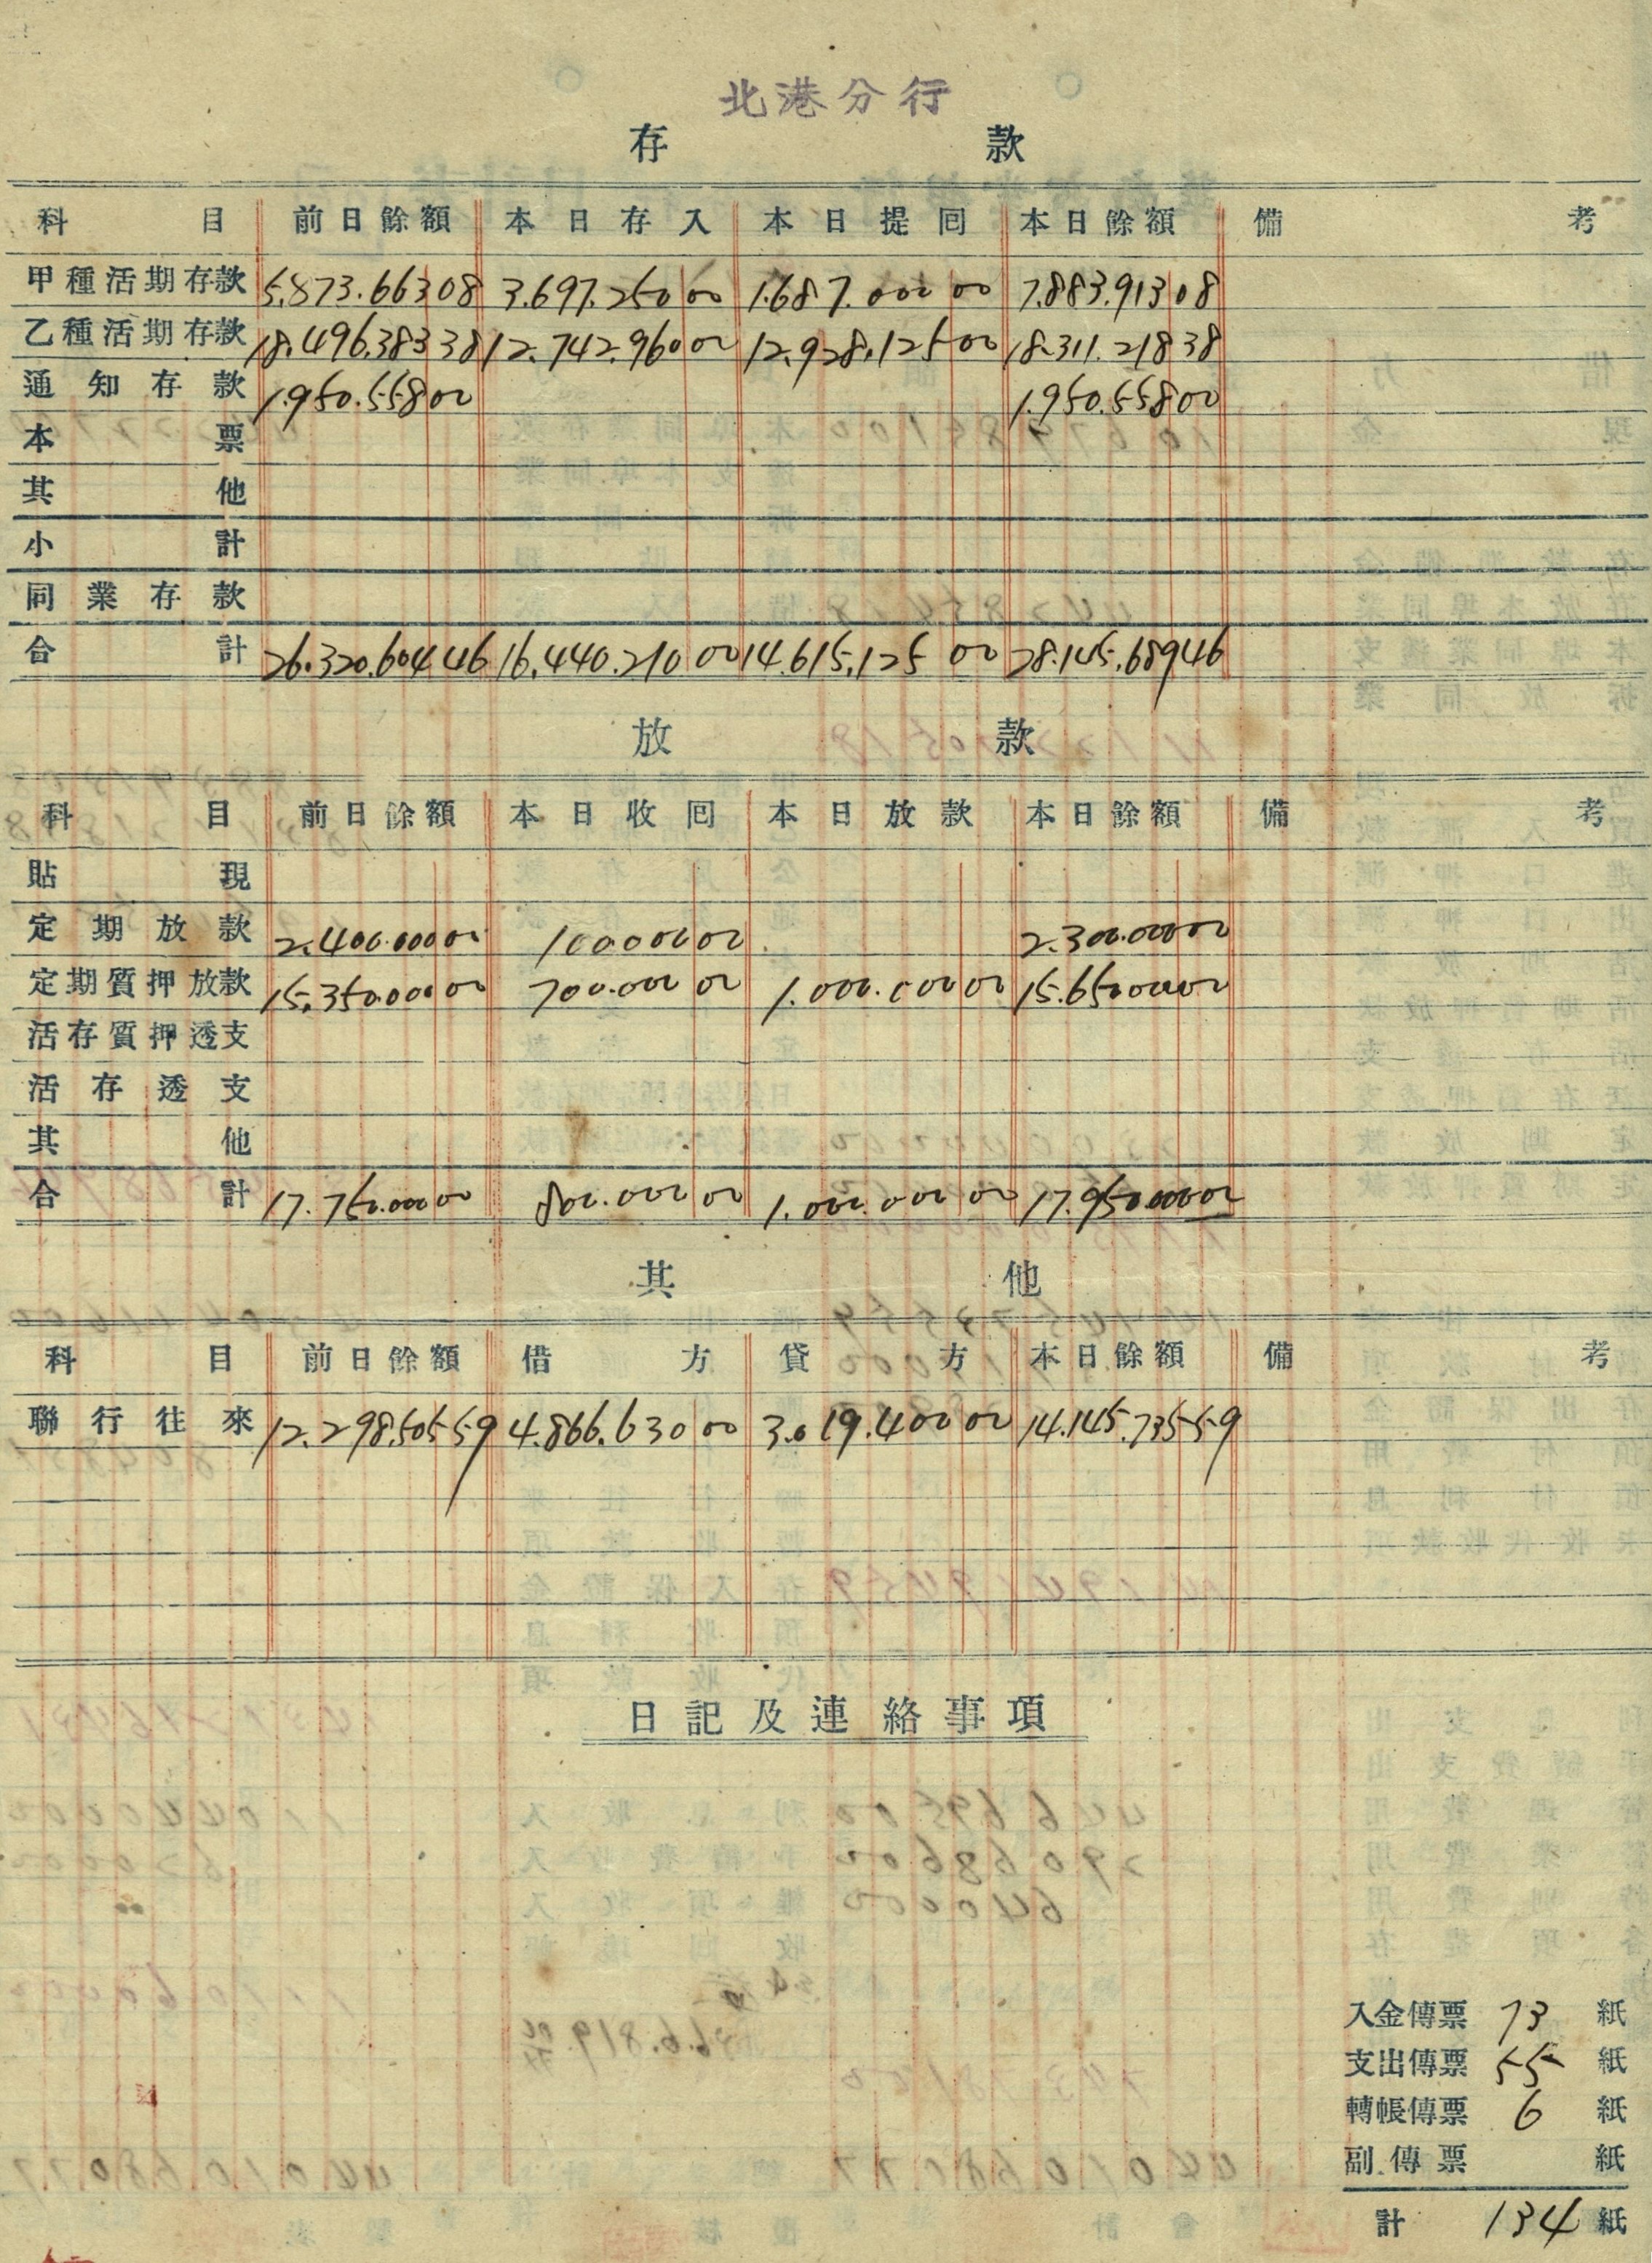 北港分行
存款
科目 前日餘額 本日存入 本日提回 本日餘額 備考
甲種活期存款 5.873.663 08 3.697.250 00 1.687.000 00 7.883.913 08
乙種活期存款 18.496.383 38 12.742.960 00 12.928.125 00 18.311.218 38
通知存款 1.950.558 00 1.950.558 00
本票
其他
小計
同業存款
合計 26.320.604 46 16.440.210 00 14.615.125 00 28.145.689 46
放款
科目 前日餘額 本日收回 本日放款 本日餘額 備考
貼現
定期放款 2.400.000 00 100.000 00 2.300.000 00
定期質押放款 15.350.000 00 700.000 00 1.000.000 00 15.650.000 00
活存質押透支
活存透支
其他
合計 17.750.000 00 800.000 00 1.000.000 00 17.950.000 00
其他
科目 前日餘額 借方 貸方 本日餘額 備考
聯行往來 12.298.505 59 4.866.630 00 3.019.400 00 14.145.735 59
日記及連絡事項
入金傳票 73 紙
支出傳票 55 紙
轉帳傳票 6 紙
副傳票 紙
計 134 紙